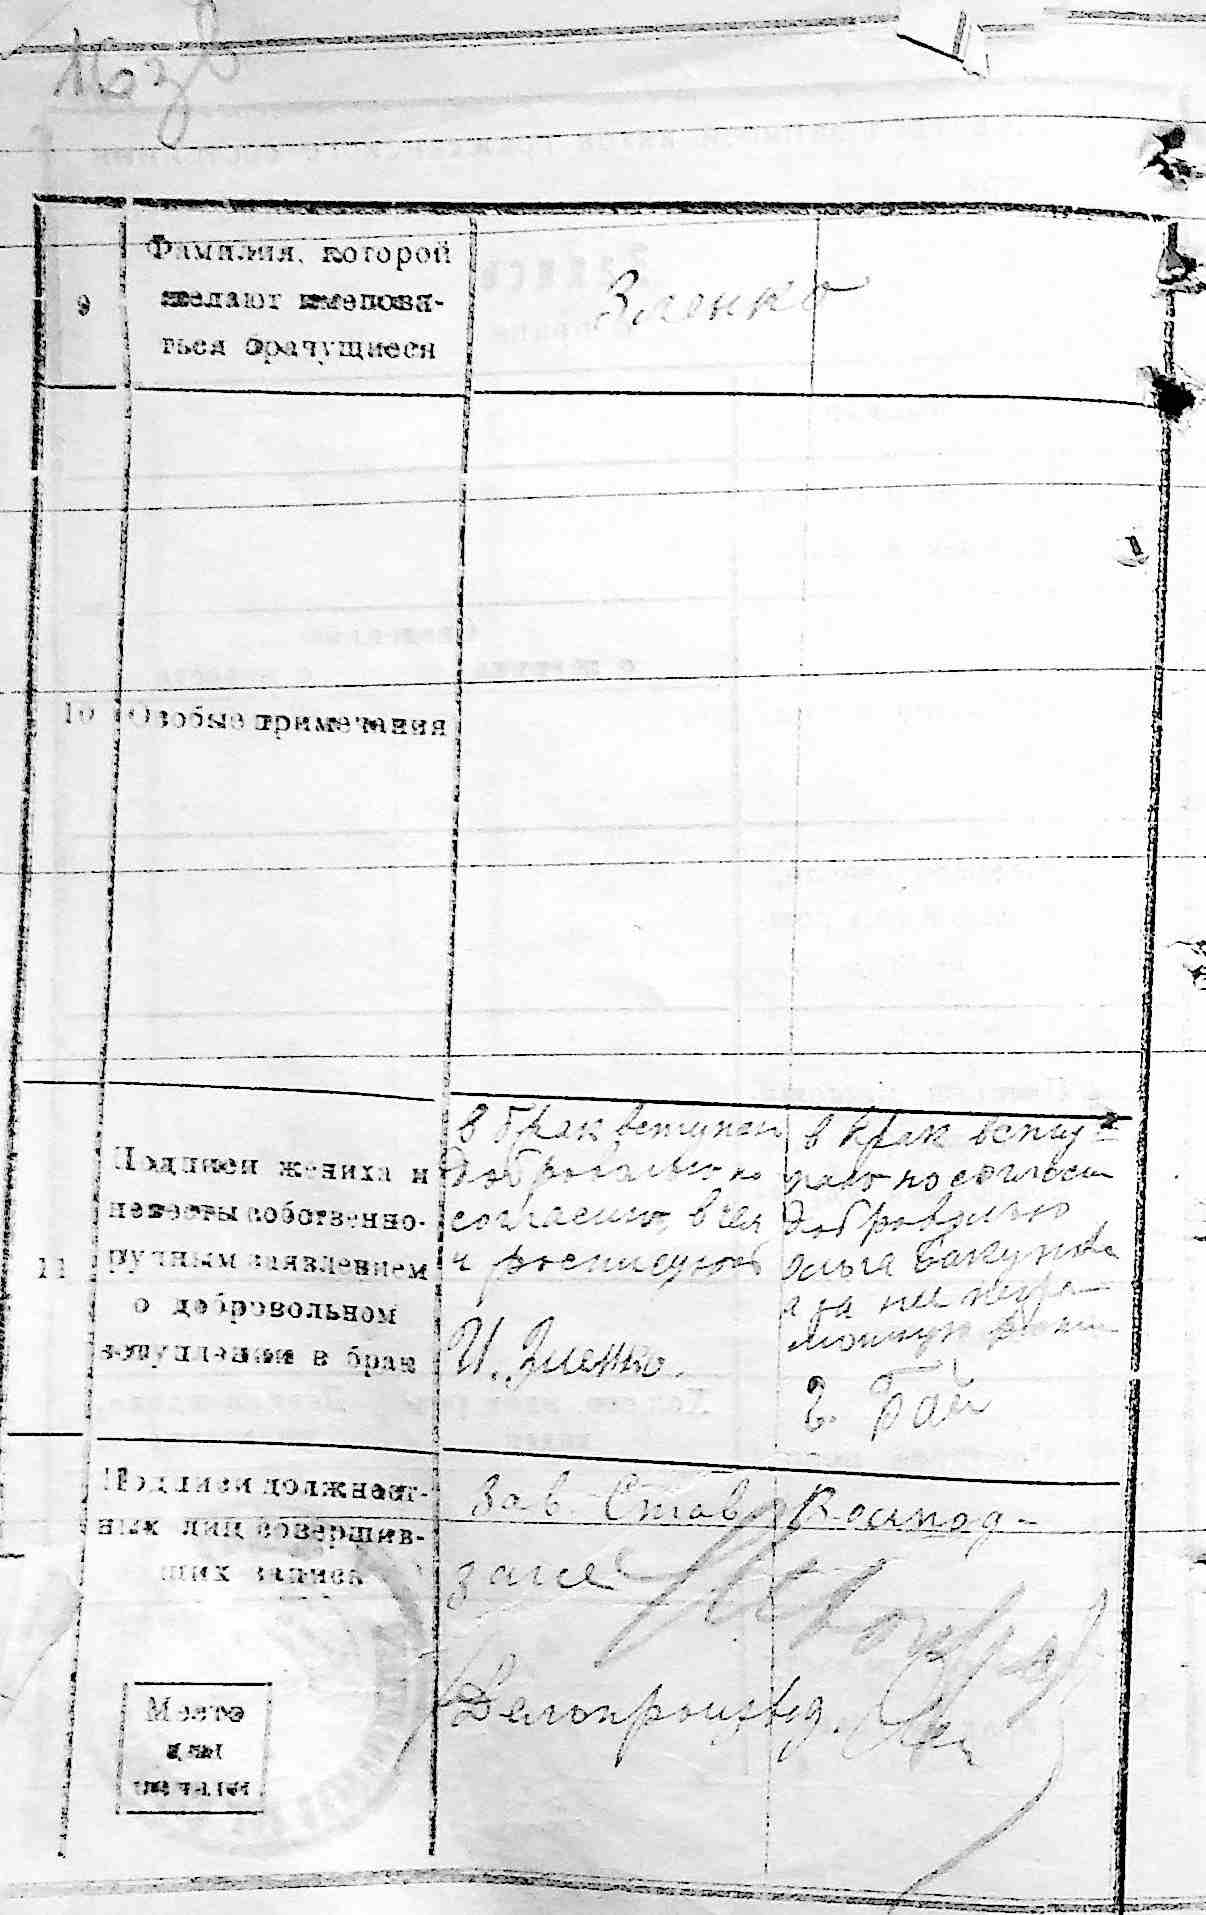 9
Фамилия, которой
желают именова-
ться брачущиеся
Зленко
10 Особые примечания
11
Подписи жениха и
невесты собственно-
ручным заявлением
о добровольном
вступлении в брак
в брак вступаю
добровольно по
согласию, в чем
и росписуюсь
И. Зленко.
в брак всту-
паю по согласию
добровольно
Ольга Бакунова
а за нее негра-
мотную
Г. Бай
Подписи должност-
ных лиц совершив-
ших запись
Зав. Став
Делопроизвод.
Место
для
печати